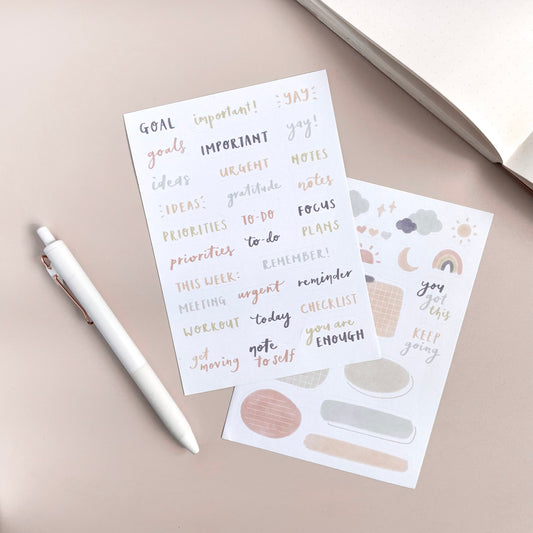 GOAL important! YAY
goals IMPORTANT yay!
ideas URGENT NOTES
IDEAS gratitude notes
PRIORITIES TO-DO FOCUS
priorities to-do PLANS
THIS WEEK: REMEMBER!
MEETING urgent reminder
WORKOUT today CHECKLIST
get moving note to self you are ENOUGH
you
got
this
KEEP
going